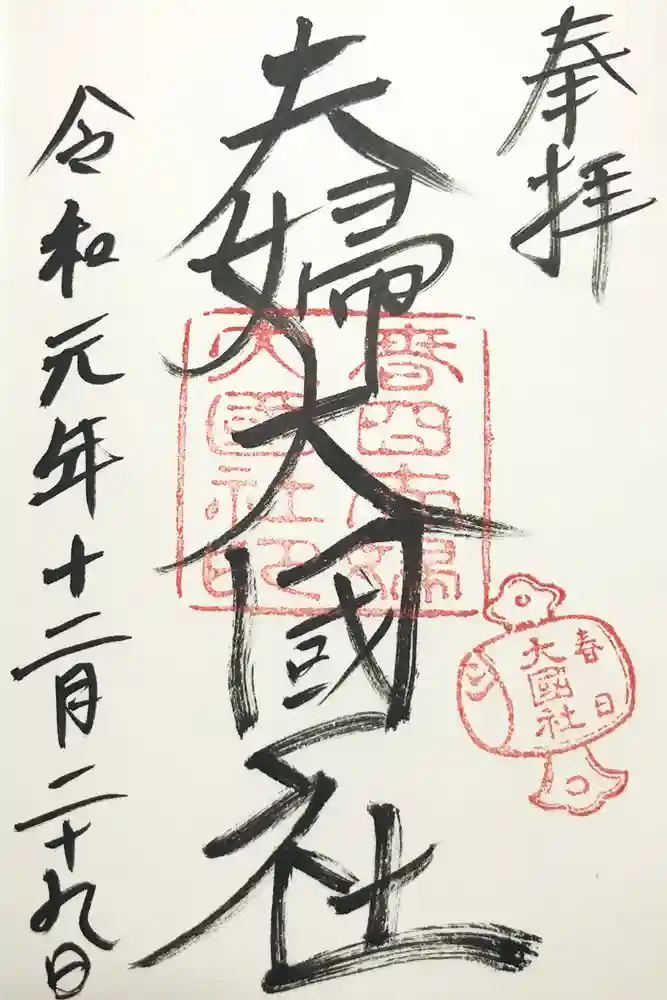 奉拝
夫婦大國社
春日夫婦
大國社印
春日
大國社
令和元年十二月二十九日